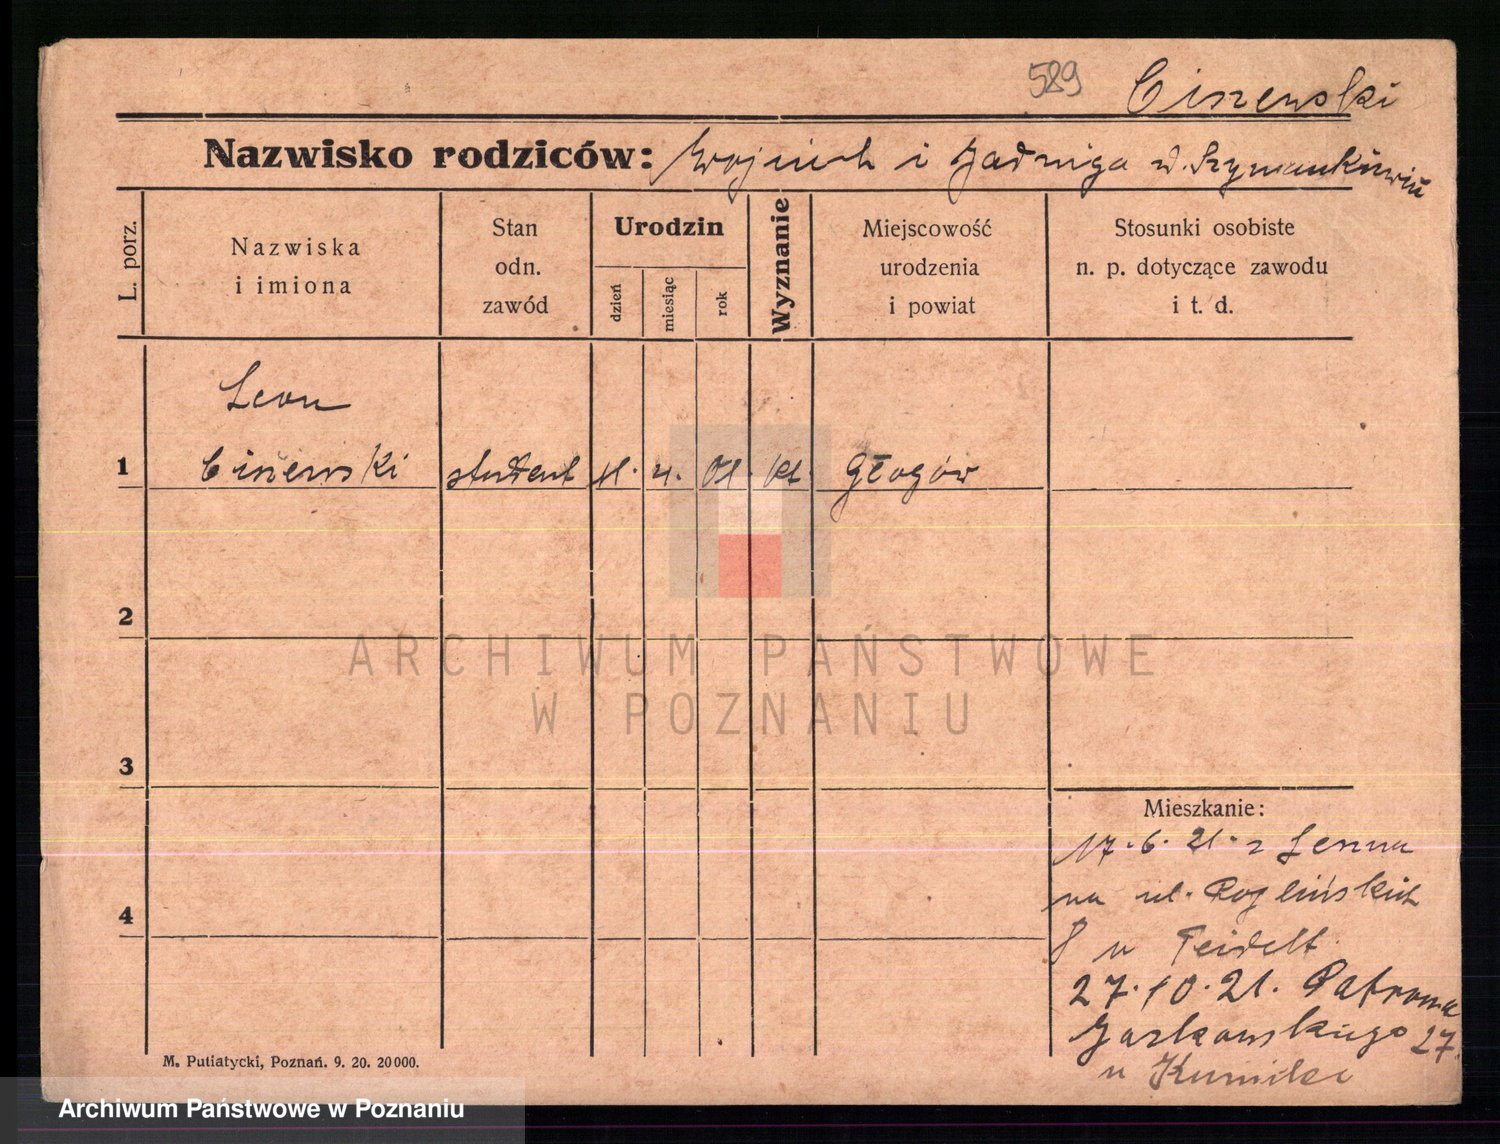 589 Ciszewski
Nazwisko rodziców: Wojciech i Jadwiga d. Szymankiewicz
L. porz.
Nazwiska
i imiona
Stan
odn.
zawód
Urodzin
dzień
miesiąc
rok
Wyznanie
Miejscowość
urodzenia
i powiat
Stosunki osobiste
n. p. dotyczące zawodu
i t. d.
Leon
1 Ciszewski student 11. 4. 01. kt. Głogów
2
ARCHIWUM PAŃSTWOWE
W POZNANIU
3
Mieszkanie:
17.6.21. z Leszna
na ul.
4
8 u Feidelt
27.10.21. Patrona
Jackowskiego 27.
u
M. Putiatycki, Poznań. 9. 20. 20000.
Archiwum Państwowe w Poznaniu